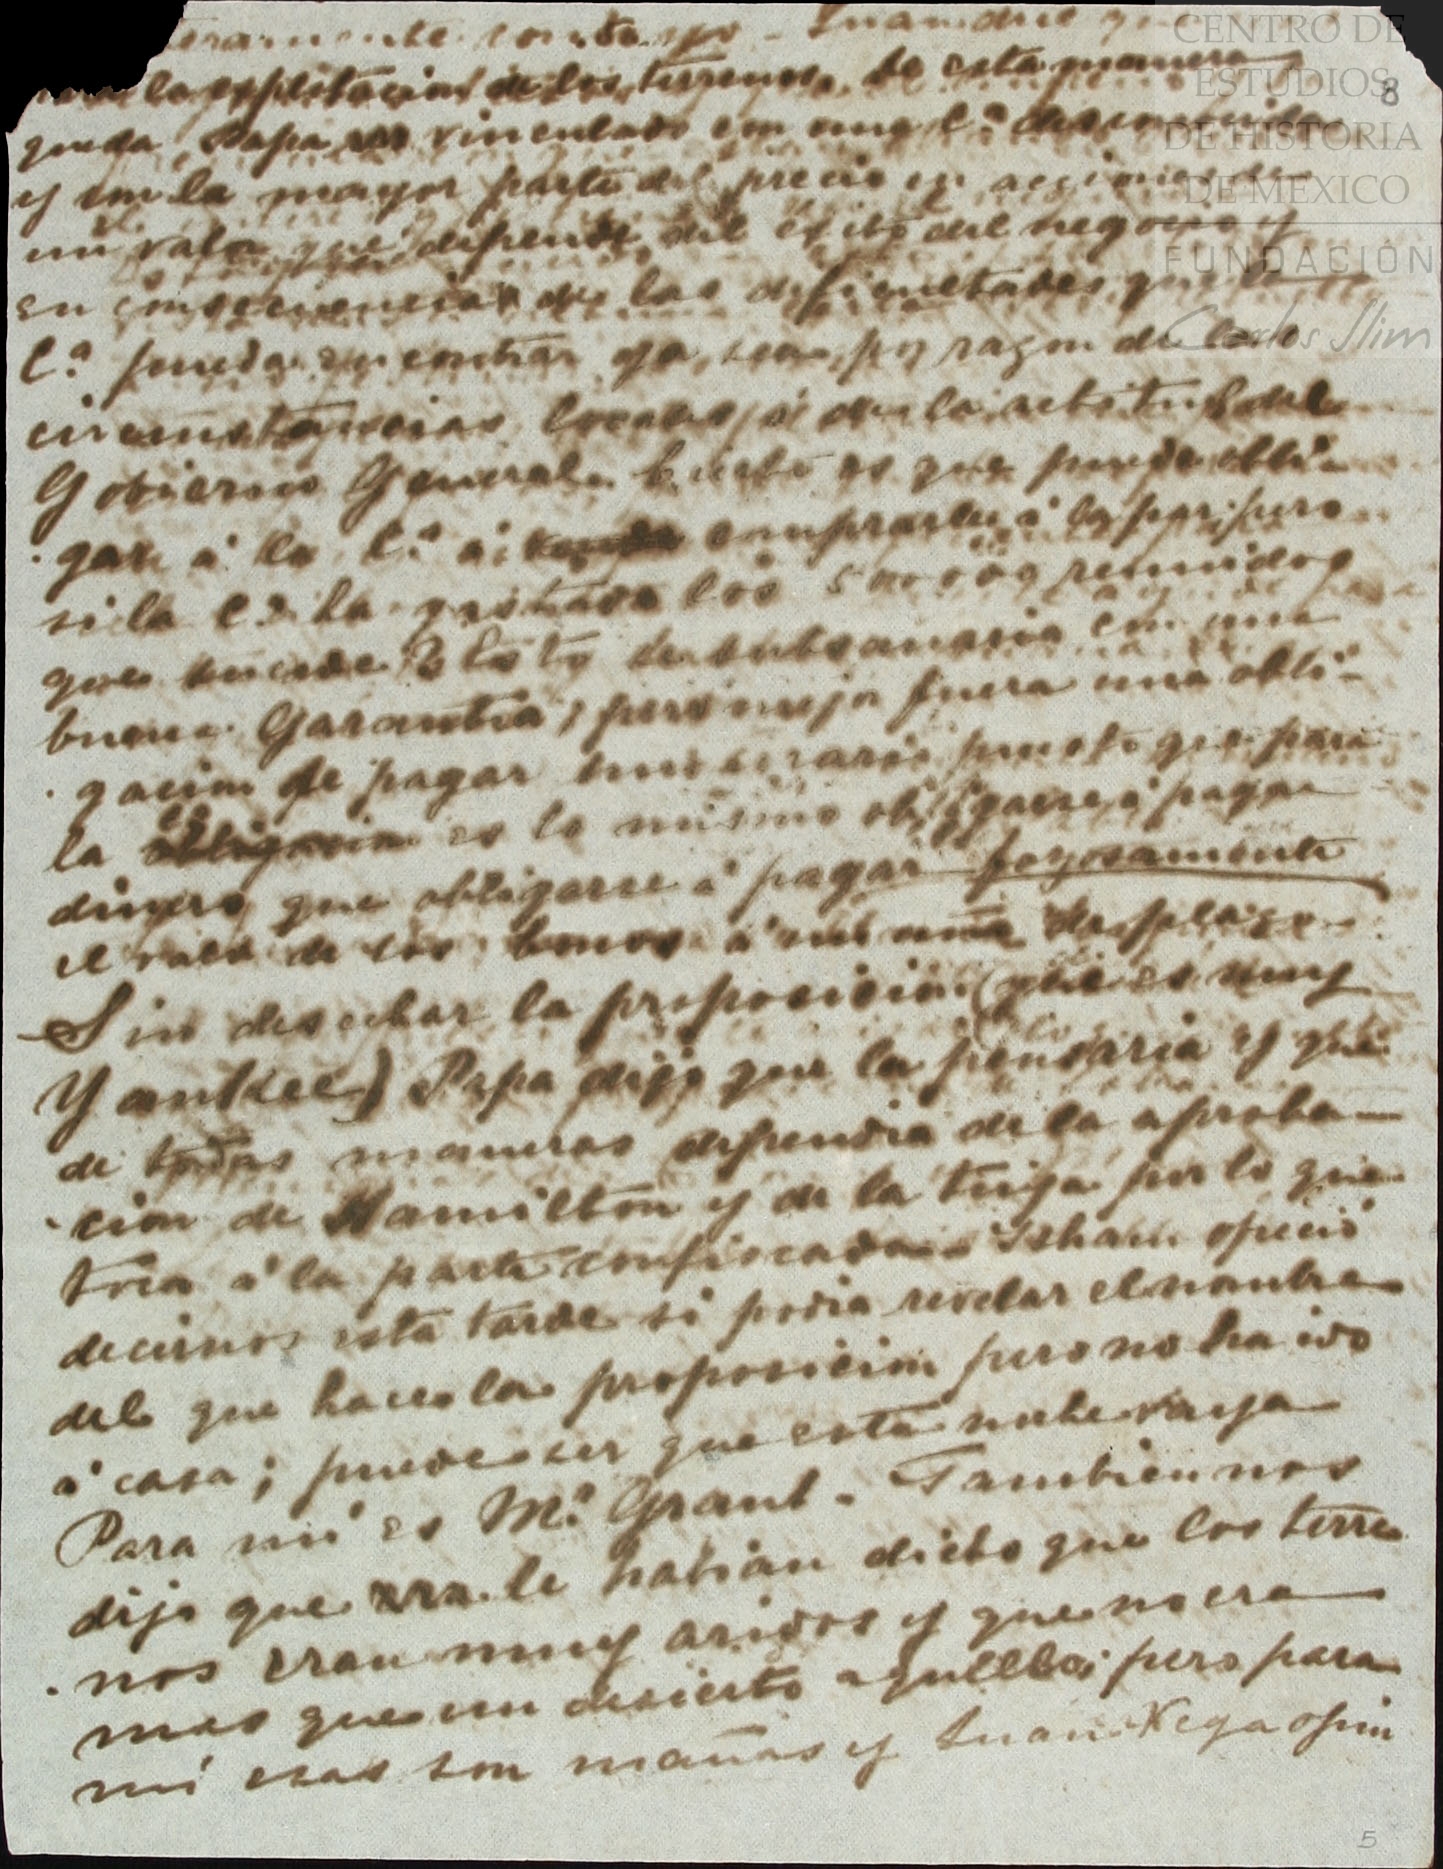 la explotacion de los terrenos. De esta manera
queda Papa vinculado con una C.ª desconocida
y con la mayor parte del precio en acciones de
un valor que depende del éxito del negocio y
en consecuencia de las dificultades que la
C.ª pueda encontrar ya sea por razon de
circunstancias locales ó de la actitud del
Gobierno General. Cierto es que puede obli-
gar á la C.ª á comprarlas á la par; pero
si la C.ª ha gastado los 500000 reunidos
que sucede? Esto se subsanaria con una
buena Garantia; pero mejor fuera una obli-
gacion de pagar numerario puesto que para
la es lo mismo obligarse á pagar
dinero que obligarse á pagar forzosamente
el valor de los bonos á
Sin desechar la proposicion (que es muy
Yankee) Papa dijo que la pensaria y que
de todas maneras dependia de la aproba-
cion de Hamilton y de la tuya por lo que
toca á la parte confiscada. Isham ofreció
decirnos esta tarde si podia revelar el nombre
del que hace la proposicion pero no ha ido
á casa; puede ser que esta noche vaya
Para mi es M.r Grant. Tambien nos
dijo que le habian dicho que los terre-
nos eran muy aridos y que no era
mas que un desierto aquello; pero para
mi esas son mañas y Juan Vega opin
8
5
CENTRO DE
ESTUDIOS
DE HISTORIA
DE MEXICO
FUNDACIÓN
Carlos Slim